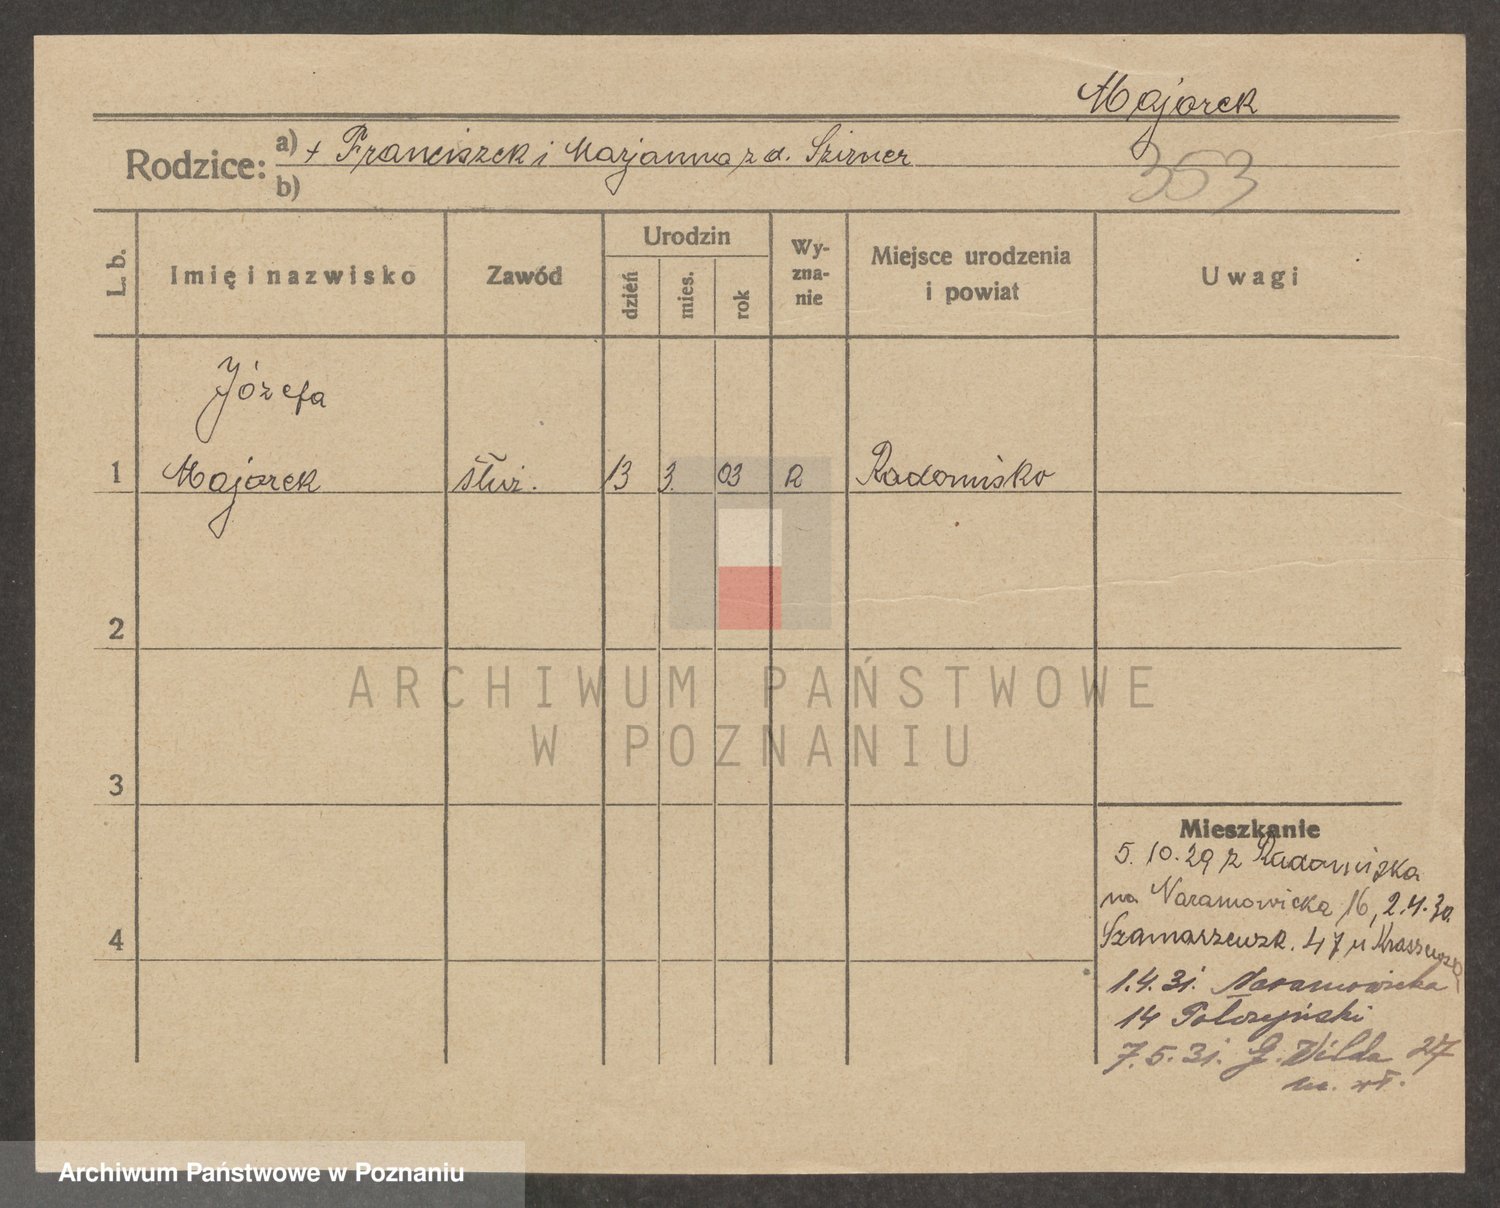 Majorek
Rodzice: a) + Franciszek i Marjanna z d. Szirner
b)
353
L. b.
Imię i nazwisko
Zawód
Urodzin
dzień
mies.
rok
Wy-
zna-
nie
Miejsce urodzenia
i powiat
Uwagi
Józefa
1 Majorek służ. 13 3. 03 R Radomisko
2
ARCHIWUM PAŃSTWOWE
W POZNANIU
3
Mieszkanie
5. 10. 29 z Radomiska
na Naramowicka 16, 2.4.30.
4
Szamarzewsk. 47 u Kraszewsk
1.4.31. Naramowicka
14 Połczyński
7.5.31. G. Wilda 27
m. wł.
Archiwum Państwowe w Poznaniu